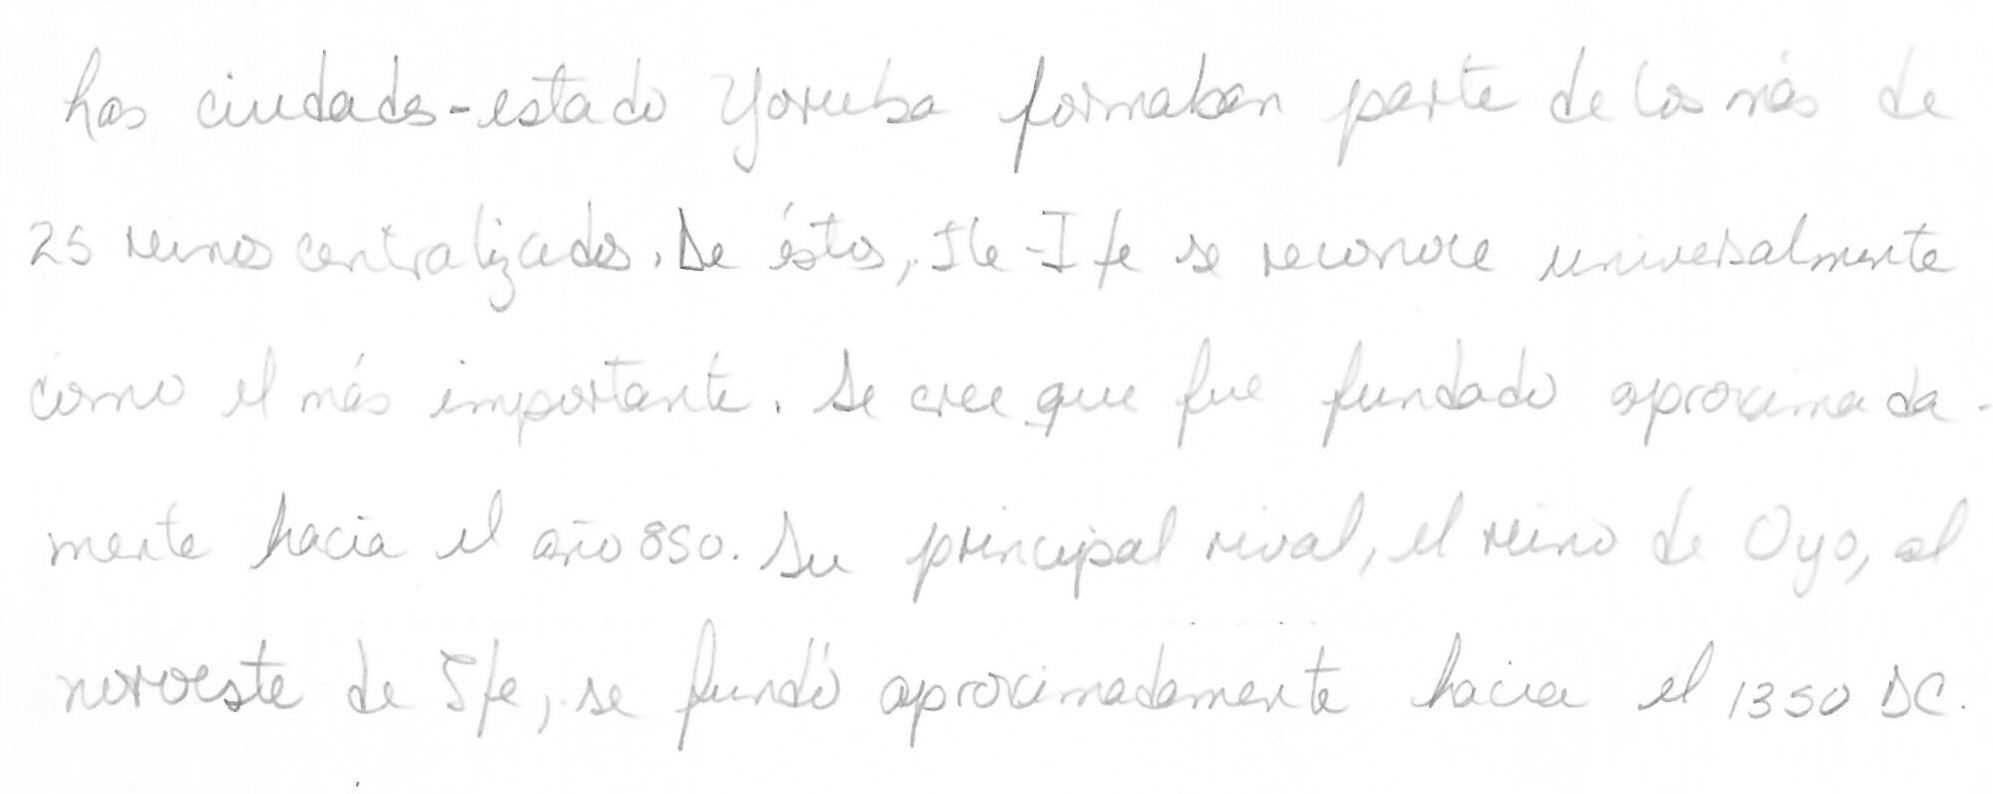 Las ciudades-estado Yoruba formaban parte de los más de
25 reinos centralizados. De éstos, Ile-Ife se reconoce universalmente
como el más importante. Se cree que fue fundado aproximada-
mente hacia el año 850. Su principal rival, el reino de Oyo, al
noroeste de Ife, se fundó aproximadamente hacia el 1350 DC.